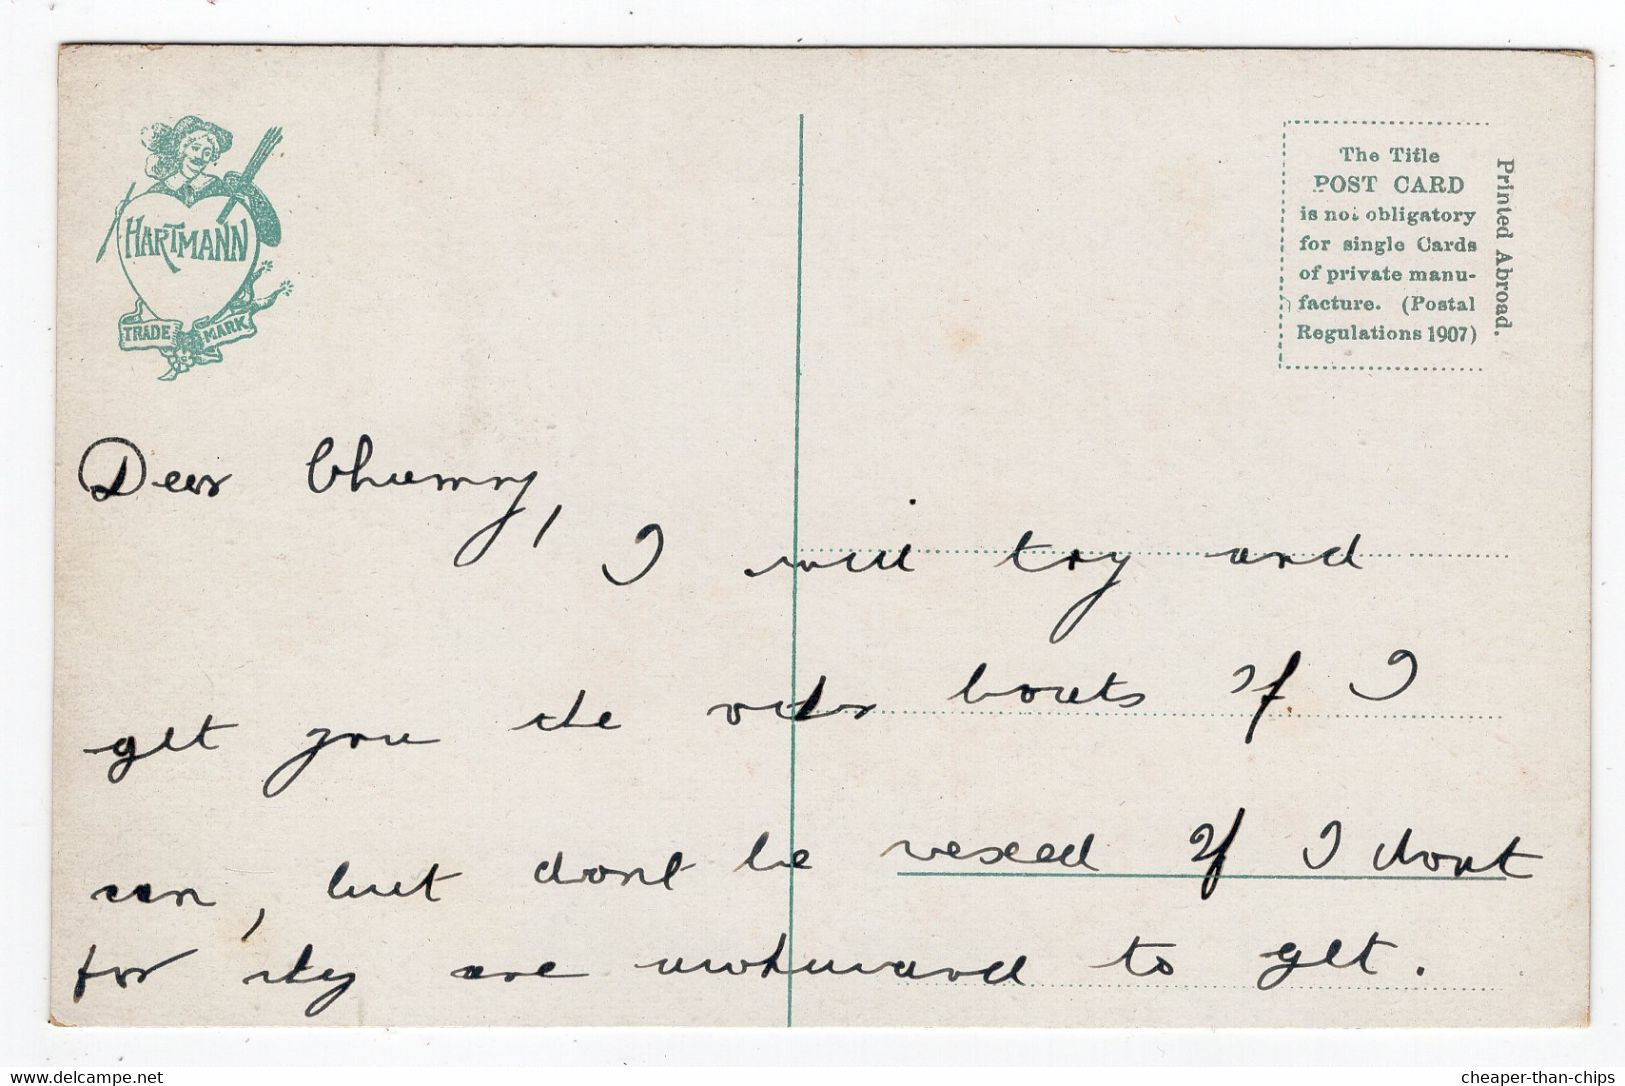 HARTMANN
TRADE MARK
The Title
POST CARD
is not obligatory
for single Cards
of private manu-
facture. (Postal
Regulations 1907)
Printed Abroad.
Dear Chummy,
I will try and
get you the boats if I
can, but dont be vexed if I dont
for they are awkward to get.
www.delcampe.net
cheaper-than-chips